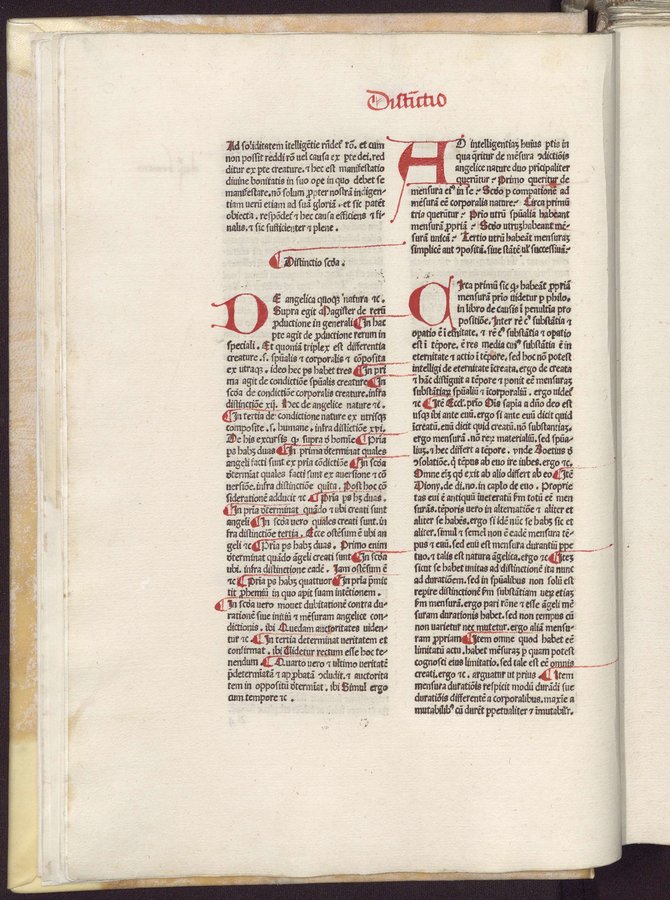 Distinctio
Ad soliditatem ītelligētie rn̄deꝉ rō. et cum
non possit reddi rō vel causa ex ꝑte dei. red
ditur ex ꝑte creature. ⁊ hec est manifestatio
diuine bonitatis in suo oꝑe in quo debet se
manifestare. nō solum ꝓpter nostrā indigen
tiam verū etiam ad suā gloriā. et sic patēt
obiecta. respōdeꝉ ⁊ hec causa efficiens ⁊ fi
nalis. ⁊ sic sufficienter ⁊ plene.
Distinctio scd̄a.
DE angelica quoqꝫ natura ⁊c.
Supra egit Magister de rerū
ꝓductione in generali In hac
ꝑte agit de ꝓductione rerum in
speciali. Et quoniā triplex est differentia
creature. s. spūalis ⁊ corporalis ⁊ cōposita
ex utraqꝫ. ideo hec ps habet tres In pri
ma agit de condictiōe spūalis creature In
scd̄a de condictiōe corporalis creature. infra
distinctiōe xij. Nec de angelice nature ⁊c.
In tertia de condictione nature ex utrisqꝫ
composite. s. humane. infra distictiōe xvi.
De his excursis ꝙ supra d̄ homīe Pria
ps habꝫ duas In prima determinat quales
angeli facti sunt ex pria cōdictiōe In scd̄a
det̄minat quales facti sunt ex auersione ⁊ cō
versiōe. infra distinctiōe quita. Post hoc cō
siderationē adducit ⁊c Pria ps hꝫ duas.
In pria det̄minat quādo ⁊ ubi creati sunt
angeli In scd̄a vero quales creati sunt. in
fra distinctiōe tertia. Ecce ostēsum ē ubi an
geli ⁊c Pria ps habꝫ duas. Primo enim
det̄minat quādo āgeli creati sunt In scd̄a
ubi. infra distinctione eadē. Iam ostēsum ē
⁊c Pria ps habꝫ quattuor In pria p̄mit
tit ꝓhemiū in quo apit suam intētionem.
In scd̄a vero mouet dubitationē contra du-
rationē siue initiū ⁊ mēsuram angelice con
dictionis. ibi Quedam auctoritates viden-
tur ⁊c In tertia determinat veritatem et
confirmat. ibi Uidetur rectum esse hoc te-
nendum Quarto vero ⁊ ultimo veritatē
p̄determiatā ⁊ approbatā ɔcludit. ⁊ auctorita
tem in oppositū det̄miat. ibi Simul ergo
cum tempore ⁊c.
AD intelligentiaꝫ huius ꝑtis in
qua q̄ritur de mēsura ɔdictiōis
angelice nature duo pricipaliter
querūtur Primo queritur de
mensura eiꝰ in se Scd̄o ꝑ compatiōne ad
mēsurā eē corporalis nature Circa primū
trio querūtur Prio utrū spūalia habeant
mensurā ꝓpriā Scd̄o utruꝫ habeant mē-
surā unicā Tertio utrū habeāt mensuraꝫ
simplicē aut ɔpositā. siue stātē uꝉ successiuā
CIrca primū sic ꝙ habeāt ꝓpriā
mensurā prio uidetur ꝑ philo.
in libro de causis ī penultīa pro
positiōe. Inter rē cꝰ substātia ⁊
opatio ē ī eternitate, ⁊ rē cꝰ substātia ⁊ opatio
est ī tēpore, ē res media cuiꝰ substātia ē in
eternitate ⁊ actio ī tēpore, sed hoc nō potest
intelligi de eternitate īcreata. ergo de creata
⁊ hāc distiguit a tēpore ⁊ ponit eē mensuraꝫ
substātiaꝫ spūaliū ⁊ īcorporaliū. ergo uideꝉ
⁊c Itē Eccꝉ. prio Ois sapīa a dn̄o deo est
usqꝫ ibi ante euū. ergo si ante euū dicit quid
īcreatū. euū dicit quid creatū. nō substantiaꝫ.
ergo mensurā. nō reꝝ materialiū. sed spūa-
liaꝫ, ⁊ hec differt a tēpore. vnde Boetius d̄
ɔsolatiōe. q̄ tēpus ab euo ire iubes. ergo ⁊c.
Omne em̄ qd̄ exit ab alio differt ab eo Itē
Diony. de di. no. in caplo de euo. Proprie
tas eui ē antiquū īueteratū ⁊ fm totū eē men
surās. tēporis vero in alternatiōe ⁊ aliter et
aliter se habēs. ergo si idē nūc se habꝫ sic et
aliter. simul ⁊ semel non ē eadē mensura tē-
pus ⁊ euū. sed euū est mensura durantiū ꝑpe
tuo. ⁊ talis est natura āgelica. ergo ⁊c Iteꝫ
sicut se habet unitas ad distinctionē ita nunc
ad duratiōem. sed in spūalibus non solū est
reꝑire distinctionē fm substātiam veꝝ etiaꝫ
fm mensurā. ergo pari rōne ⁊ esse āgeli mē
suram durationis habet. sed non tempus cū
non varietur nec mutetur. ergo aliā mensu-
ram ꝓpriam Item omne quod habet eē
limitatū actu. habet mēsuraꝫ ꝑ quam potest
cognosci eius limitatio. sed tale est eē omnis
creati. ergo ⁊c. arguatur ut prius Item
mensura duratiōis respicit modū durādi sue
duratiōis differentē a corporalibus. maxīe a
mutabilibꝰ cū duret ꝑpetualiter ⁊ īmutabilr.